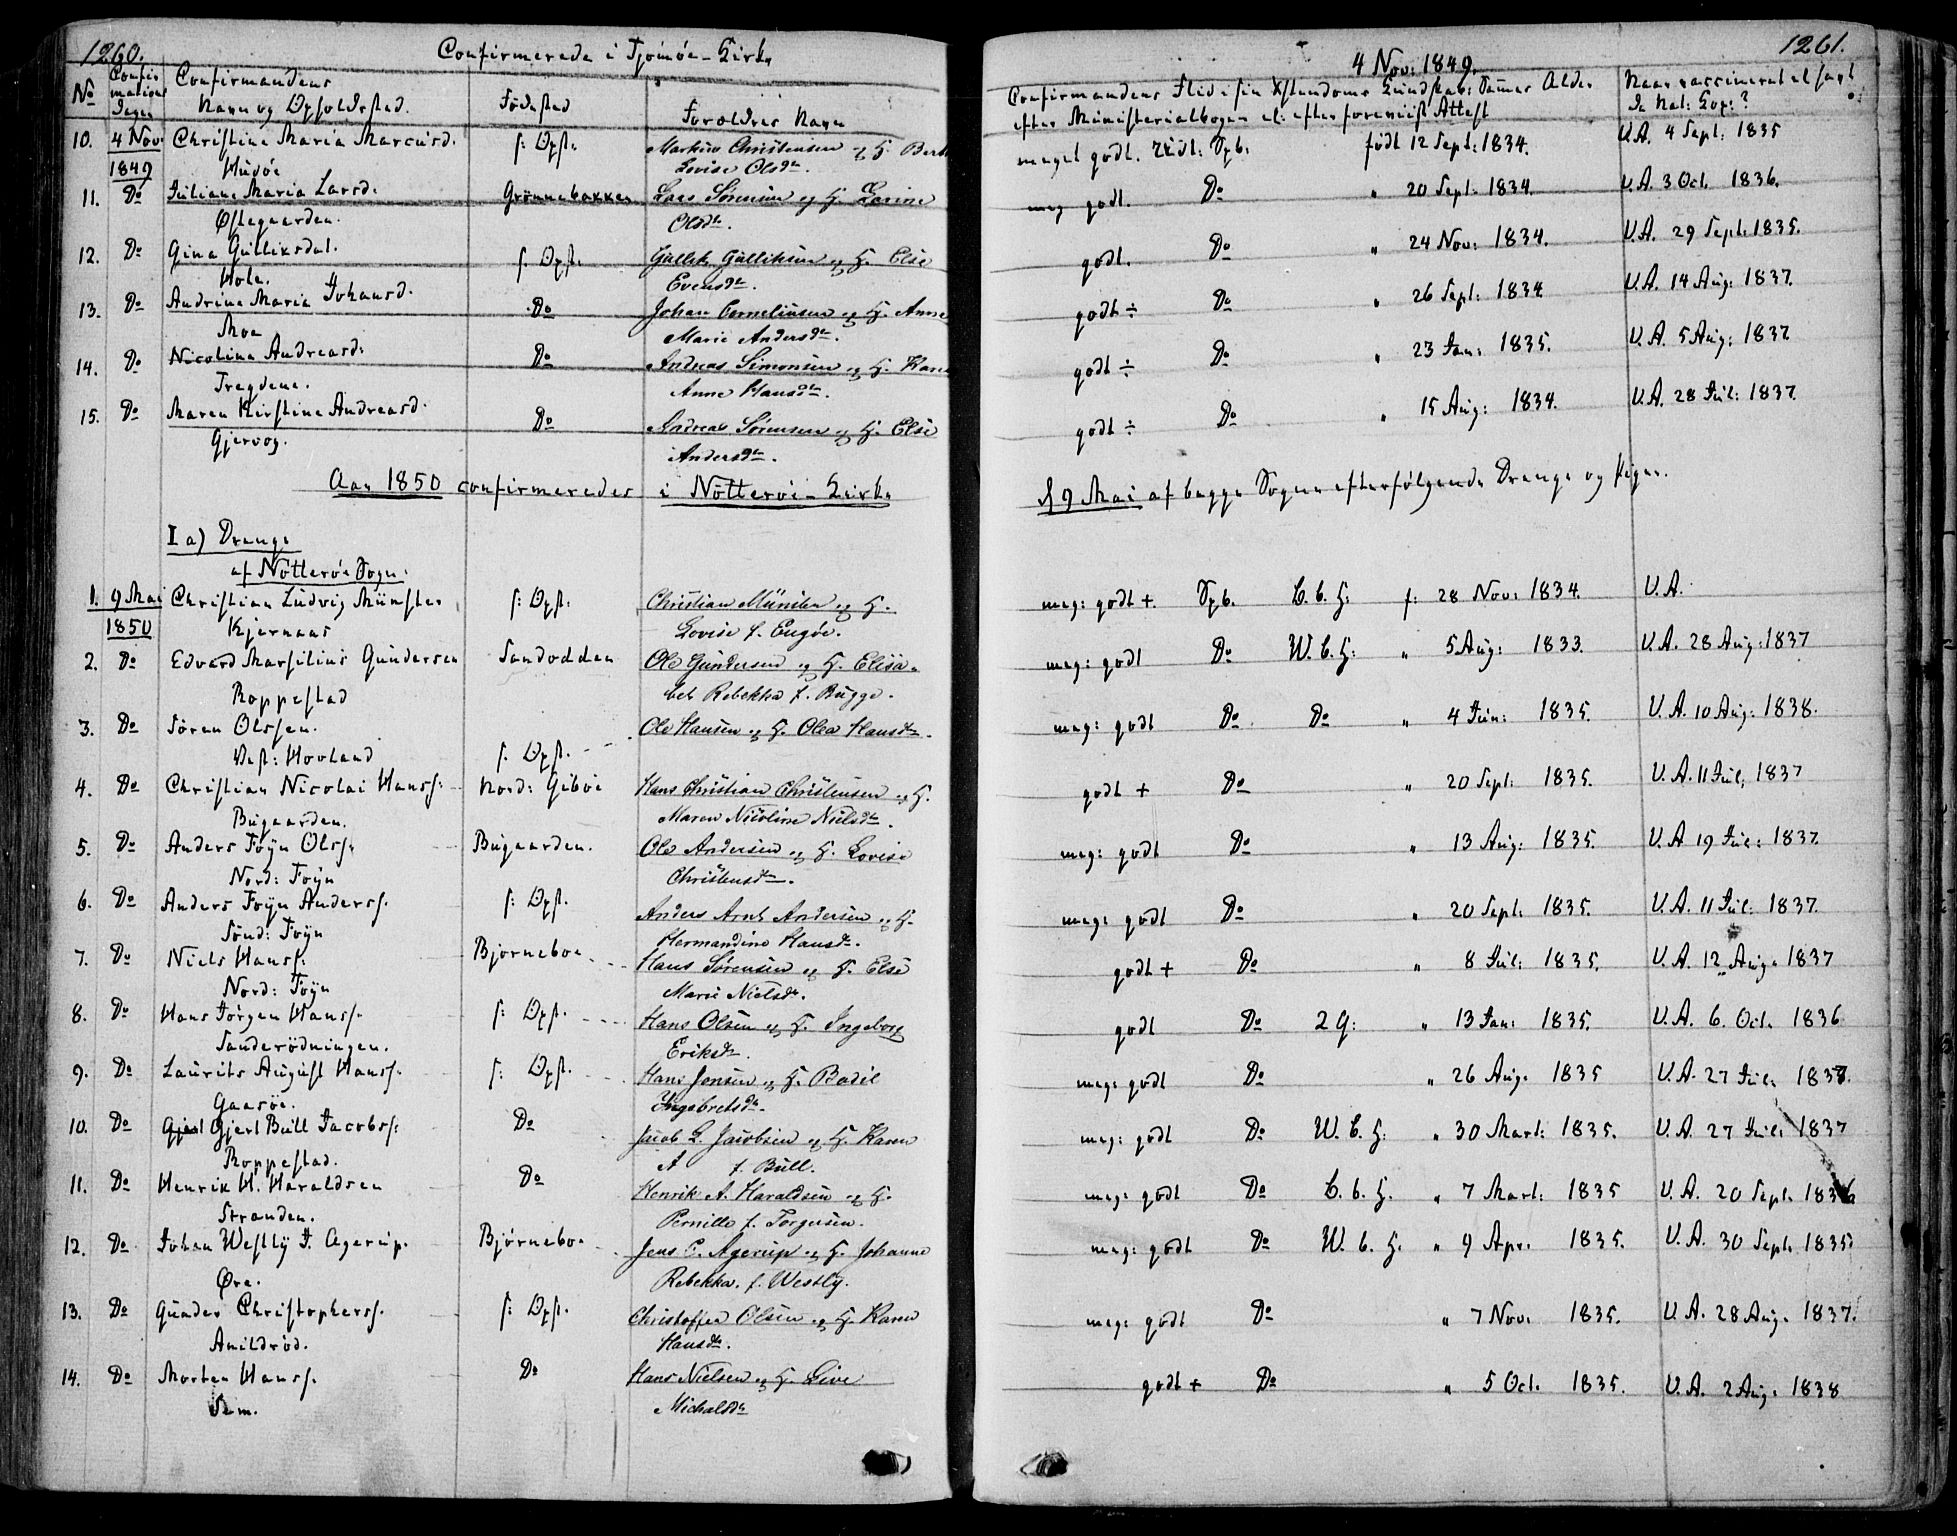 1260.
Confirmerede i Tjømøe-Kirke
No
Confirmations Dagen
Confirmandens
Navn og Opholdssted.
Fødested
Forældres Navn
10. 4 Nov: 1849 Christine Maria Marcusd. f: Opst. Markus Christensen og H. Berthe
Hudøe Lovise Olsdtr.
11. Do Juliane Maria Larsd. Grønnebakken Lars Sørensen og H. Karine
Østegaarden. Olsdtr.
12. Do Gina Gulliksdat. f. Opst. Gullik Gulliksen og H. Else
Hole. Evensdtr.
13. Do Andrine Maria Johansd. Do Johan Corneliusen og H. Anne
Moe Marie Andersdtr.
14. Do Nicoline Andreasd: Do Andreas Simonsen og H. Karen
Tregdene. Anne Hansdtr.
15. Do Maren Kirstine Andreasd. Do Andreas Sørensen og H. Else
Gjervog. Andersdtr.
Aar 1850 confirmeredes i Nøtterøe-Kirke
I a) Drenge
af Nøtterøe Sogn:
1. 9 Mai 1850 Christian Ludvig Münster f: Opst: Christian Münster og H.
Kjernaas Lovise f. Engøe.
2. Do Edvard Marsilius Gundersen Sandodden Ole Gundersen og H. Elisa-
Roppestad bet Rebekka f. Bugge.
3. Do Søren Olssen. f. Opst. Ole Hansen og H. Olea Hansdtr.
Vest: Hovland
4. Do Christian Nicolai Hanss: Nord: Gibøe Hans Christian Christensen og H.
Bugaarden. Maren Nicoline Nielsdtr.
5. Do Anders Føyn Olss. Bugaarden. Ole Andersen og H. Lovise
Nord: Føyn Christensdtr.
6. Do Anders Føyn Anderss. f: Opst. Anders Arnt Andersen og H.
Sønd: Føyn Hermandine Hansdtr.
7. Do Niels Hanss. Bjørneboe. Hans Sørensen og H. Else
Nord: Føyn Marie Nielsdtr.
8. Do Hans Jørgen Hanss. f: Opst. Hans Olsen og H. Ingeborg
Sanderødningen. Eriksdtr.
9. Do Laurits August Hanss. f: Opst. Hans Jensen og H. Bodil
Gaasøe. Ingebretsdtr.
10. Do Gjert Bull Jacobss: Do Jacob L. Jacobsen og H. Karen
Roppestad. A f. Bull.
11. Do Henrik H. Haraldsen Do Henrik A. Haraldsen og H.
Stranden. Pernille f. Torgersen.
12. Do Johan Westly J. Agerup. Bjørneboe Jens C. Agerup og H. Johanne
Øre. Rebekka f. Westly.
13. Do Gunder Christophers. f: Opst. Christoffer Olsen og H. Karen
Amildrød. Hansdtr.
14. Do Morten Hanss. Do Hans Nielsen og H. Live
Sem. Michalsdtr
1261.
4 Nov: 1849.
Confirmandens Flid i sin Xstendoms Kundskab: Sammes Alder
efter Ministerialbogen el: efter foreviist Attest
Naar vaccineret el havt
de Nat: Kop:?
meget godt. Udst: Opf: født 12 Sept: 1834. V.A. 4 Sept: 1835
meg godt. Do " 20 Sept: 1834. V.A. 3 Oct. 1836.
godt. Do " 24 Nov: 1834. V.A. 29 Sept: 1835.
godt ÷ Do " 26 Sept: 1834 V.A. 14 Aug: 1837.
godt ÷ Do " 23 Jan: 1835. V.A. 5 Aug: 1837
godt ÷ Do " 15 Aug: 1834. V.A. 28 Jul: 1837.
d 9 Mai af begge Sogne efterfølgende Drenge og Piger.
meg: godt +. Opf. C.b.H: f: 28 Nov: 1834. V.A.
meg: godt Do W.b.H: " 5 Aug: 1833. V.A. 28 Aug: 1837
meg: godt Do Do " 4 Jun: 1835. V.A. 10 Aug: 1838.
godt + Do " 20 Sept: 1835. V.A. 11 Jul: 1837
meg: godt Do " 13 Aug: 1835. V.A 19 Jul: 1837.
meg: godt Do " 20 Sept: 1835. V.A. 11 Jul: 1837.
godt + Do " 8 Jul: 1835. V.A. 12 Aug. 1837
godt Do 2 G: " 13 Jan: 1835. V.A. 6. Oct. 1836
meg: godt Do " 26 Aug. 1835 V.A. 27 Jul: 1837.
meg: godt Do W.b.H: " 30 Mart: 1835. V.A. 27 Jul: 1837
meg: godt Do C.b.H. " 7 Mart: 1835 V.A. 20 Sept. 1836
meg: godt Do W.b.H. " 9 Apr. 1835. V.A. 30 Sept. 1835
meg: godt Do " 7 Nov. 1835. V.A. 28 Aug. 1837.
godt + Do " 5 Oct. 1835. V.A. 2 Aug. 1838